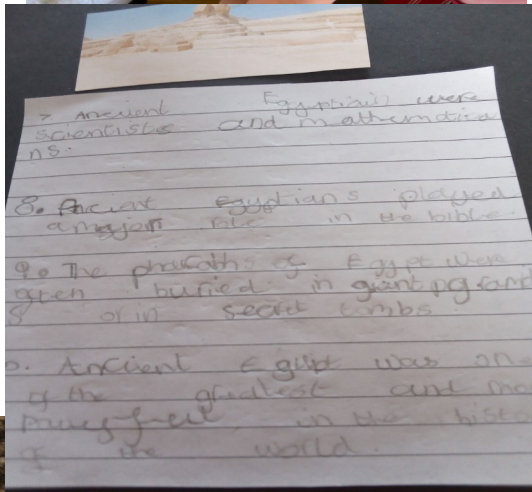 7 Ancient Egyptain were
scientists and mathematicia
ns.
8. Ancient Egyptians played
a major role in the bible.
9. The pharoahs of Egypt were
often buried in giant
s or in secret tombs
0. Ancient Egipt was one
of the greatest and mo
powerful in the histo
of the world.